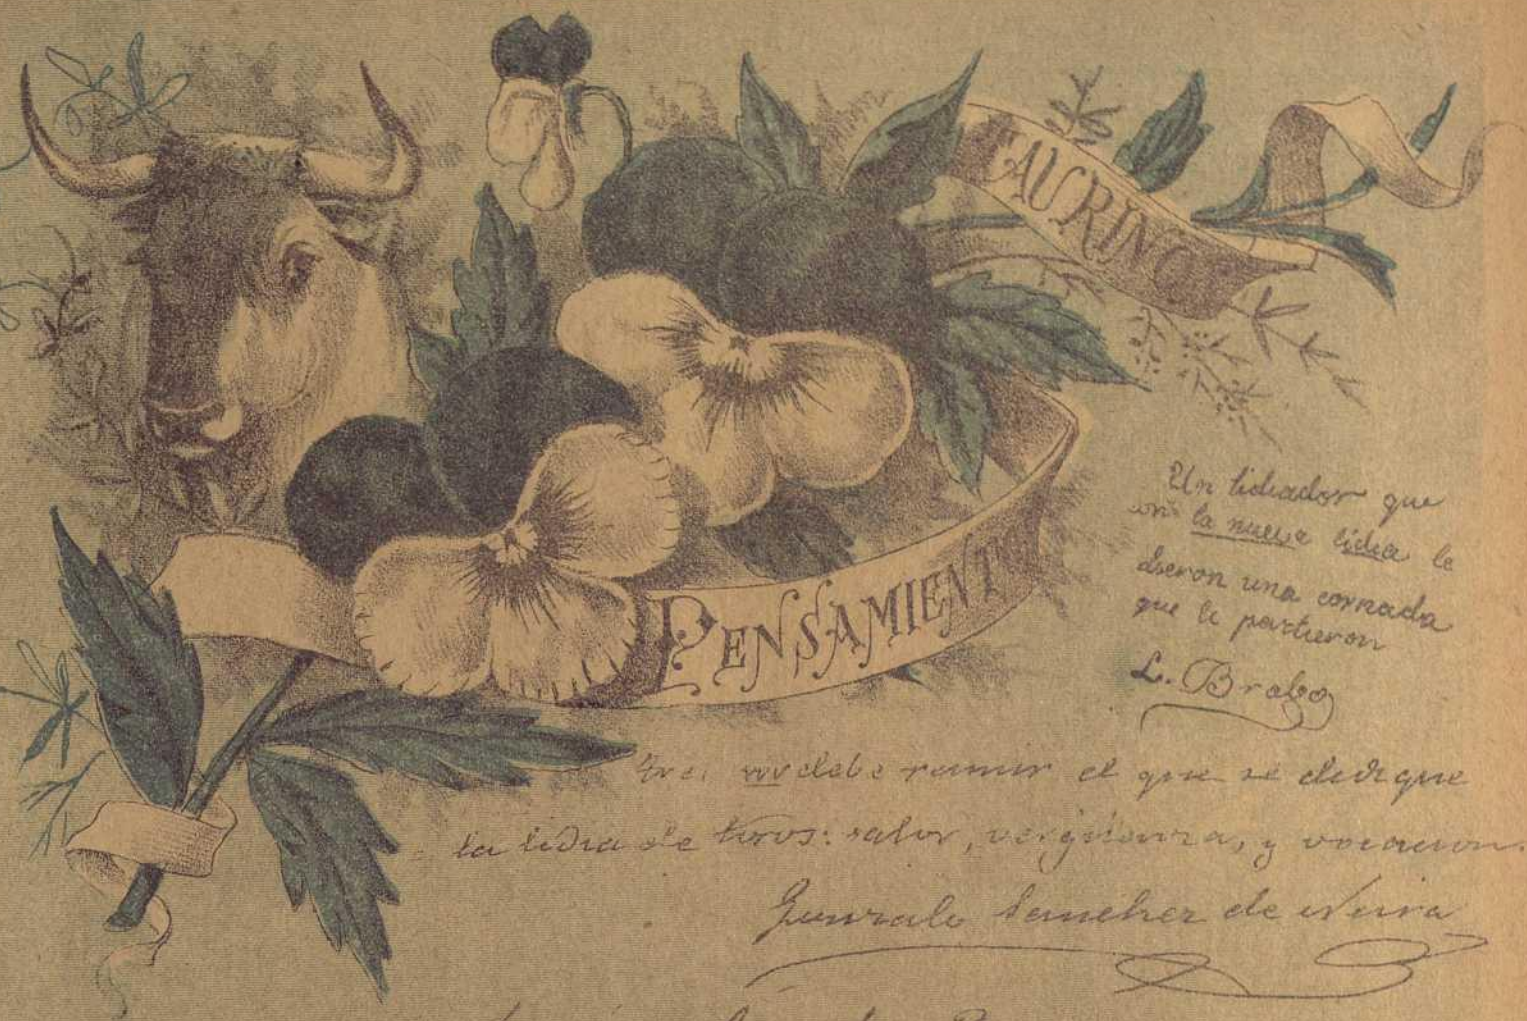 PENSAMIENT
TAURINO
Un lidiador que
en la nueva lidia le
dieron una cornada
que le partieron
L. Brabo
debe reunir el que se dedique
la lidia de toros: valor, vergüenza, y vocacion.
Gonzalo Sanchez de Neira